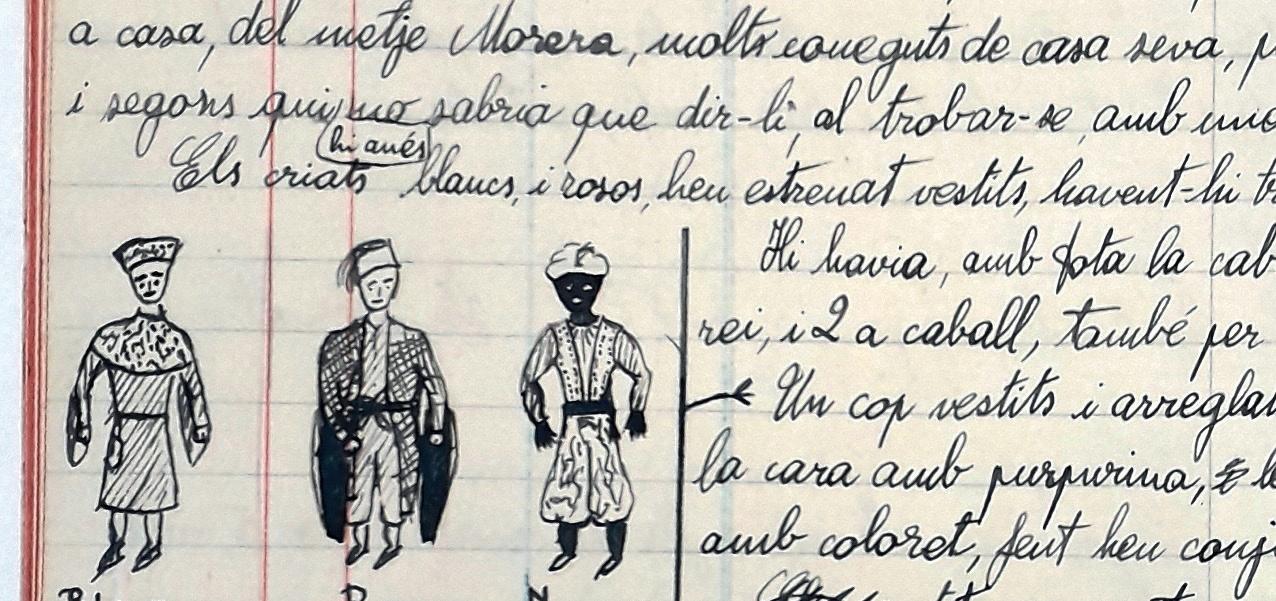 a casa, del metje Morera, molts coneguts de casa seva, p
i segons qui, no sabria que dir-li, al trobar-se, amb
hi anés
Els criats blancs, i rosos, heu estrenat vestits, havent-hi
Hi havia, amb tota la cab
rei, i 2 a caball, també per
Un cop vestits i arreglat
la cara amb purpurina,
amb coloret, fent heu conj